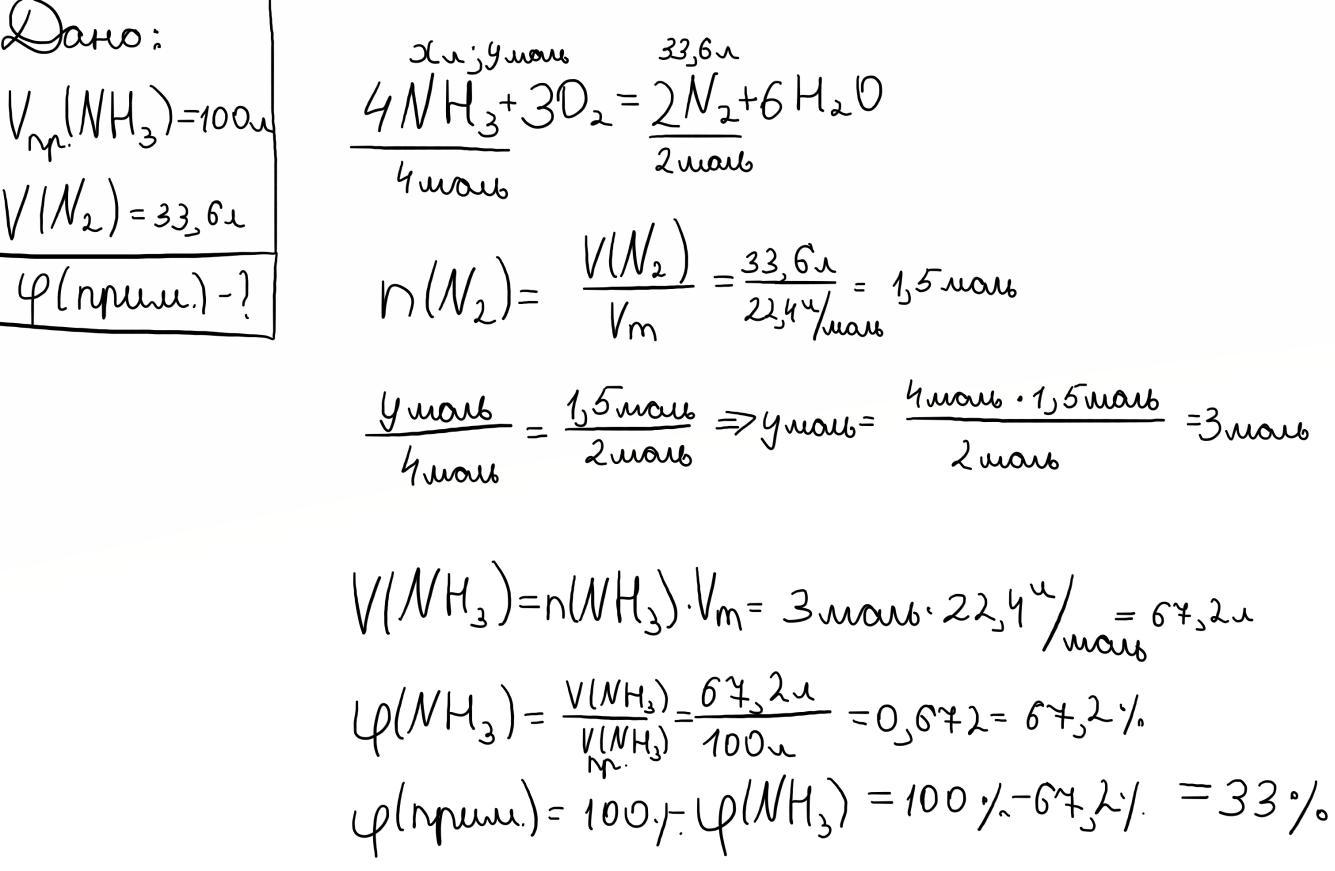 Дано:
Vпр.(NH₃)=100л
V(N₂)=33,6л
φ(прим.)-?
xл; yмоль 33,6л
4NH₃+3O₂=2N₂+6H₂O
4моль 2моль
n(N₂)= V(N₂)/Vm = 33,6л/22,4л/моль = 1,5моль
yмоль/4моль = 1,5моль/2моль => yмоль= 4моль·1,5моль/2моль =3моль
V(NH₃)=n(NH₃)·Vm= 3моль·22,4л/моль = 67,2л
φ(NH₃)= V(NH₃)/Vпр.(NH₃) = 67,2л/100л =0,672= 67,2%
φ(прим.)= 100%-φ(NH₃) =100%-67,2% =33%